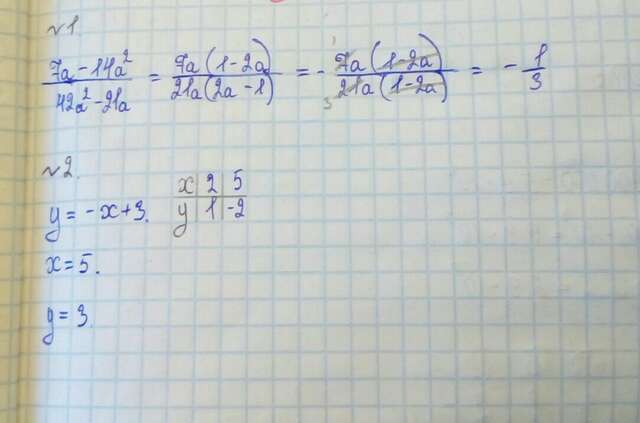 №1.
(7a-14a²)/(42a²-21a) = 7a(1-2a)/21a(2a-1) = - 7a(1-2a)/21a(1-2a) = - 1/3
№2.
x | 2 | 5
y = -x+3. y | 1 | -2
x=5.
y=3.